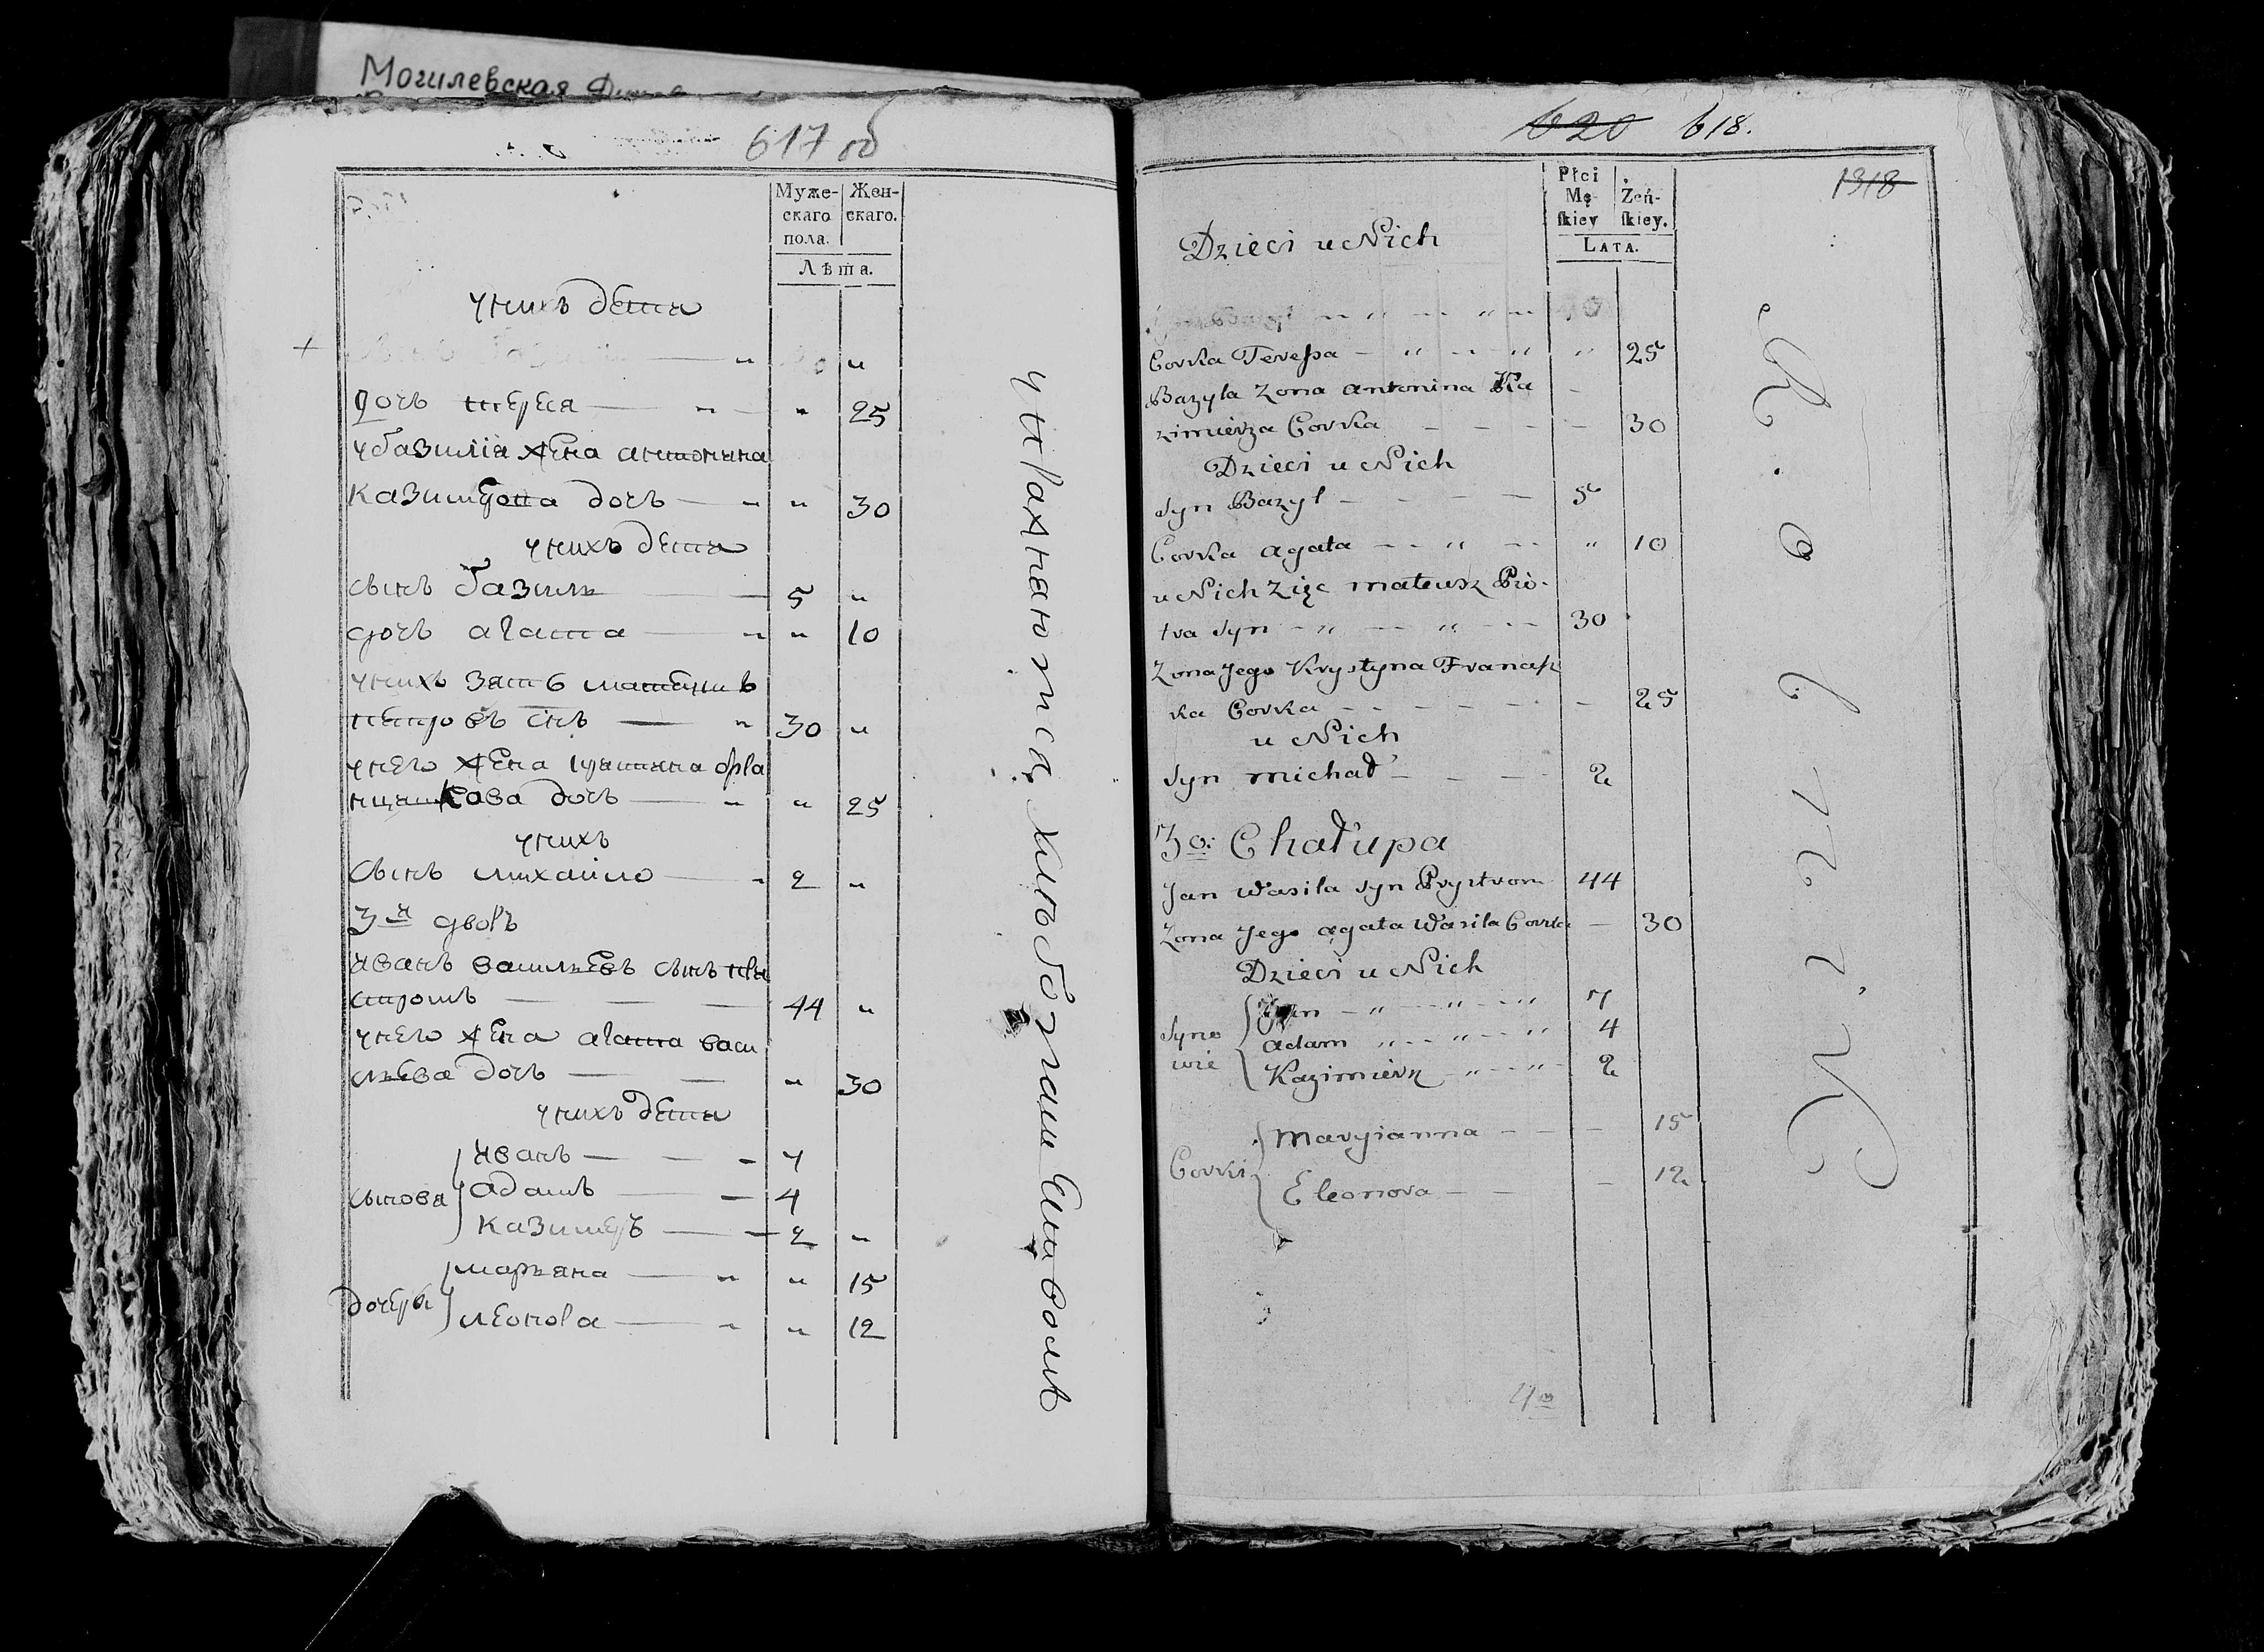 Могилевская
617 об
Муже-
скаго
пола.
Жен-
скаго.
Лѣта.
у нихъ дети
дочь тереса — " — " 25
у базилiя жена антонина
казимерова дочь — " " 30
у нихъ дети
сынъ базиль — 5 "
дочь агата — " " 10
у нихъ зять матеушъ
петровъ снъ — " 30 "
у него жена кристина фра
нцишкова дочь — " " 25
у нихъ
сынъ михайло — " 2 "
3й дворъ
иванъ васильевъ сынъ при
стромъ — — — 44 "
у него жена агата васи
льева дочь — — " 30
у нихъ дети
сынова
иванъ — — - 7
адамъ — - 4
казимеръ — - 2 "
дочери
марьяна — " " 15
леонора — " " 12
упражняютса хлѣбопашествомъ
620 618.
1318
Płci
Mę-
ſkiey
Żeń-
ſkiey.
LATA.
Dzieci u Nich
Corka Teressa - " - - " " 25
Bazyla Zona antonina Ka -
zimierza Corka - - - - - 30
Dzieci u Nich
Syn Bazyl - - - - 5
Corka agata - - " - - " 10
u Nich Zięc mateusz Pio-
tra Syn - " - - " - - 30
Zona Jego Krystyna Francisz
ka Corka - - - - - - - 25
u Nich
Syn michał - - - - 2
3o: Chałupa
Jan Wasila Syn Prystrom 44
Zona Jego agata Wasila Corka - 30
Dzieci u Nich
Syno
wie
Jan - " - - " - - " 7
adam " - - " - - " 4
Kazimierz - " - - " - 2
Corki
Maryianna - - - - 15
Eleonora - - - 12
4o